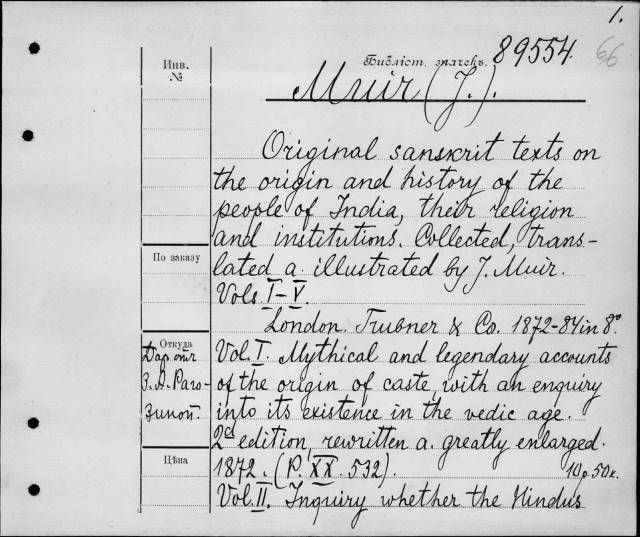 1.
89554.
66
Библіот. значекъ.
Muir (J.).
Инв.
№
Original sanskrit texts on
the origin and history of the
people of India, their religion
and institutions. Collected, trans-
lated a. illustrated by J. Muir.
Vols. I-V.
London. Trubner & Co. 1872-84 in 8°.
По заказу
Откуда
Даръ отъ
З. А. Раго-
зиной.
Vol. I. Mythical and legendary accounts
of the origin of caste, with an enquiry
into its existence in the vedic age.
2d edition, rewritten a. greatly enlarged.
1872. (P. XX. 532). 10 р. 50 к.
Цѣна
Vol. II. Inquiry whether the Hindus